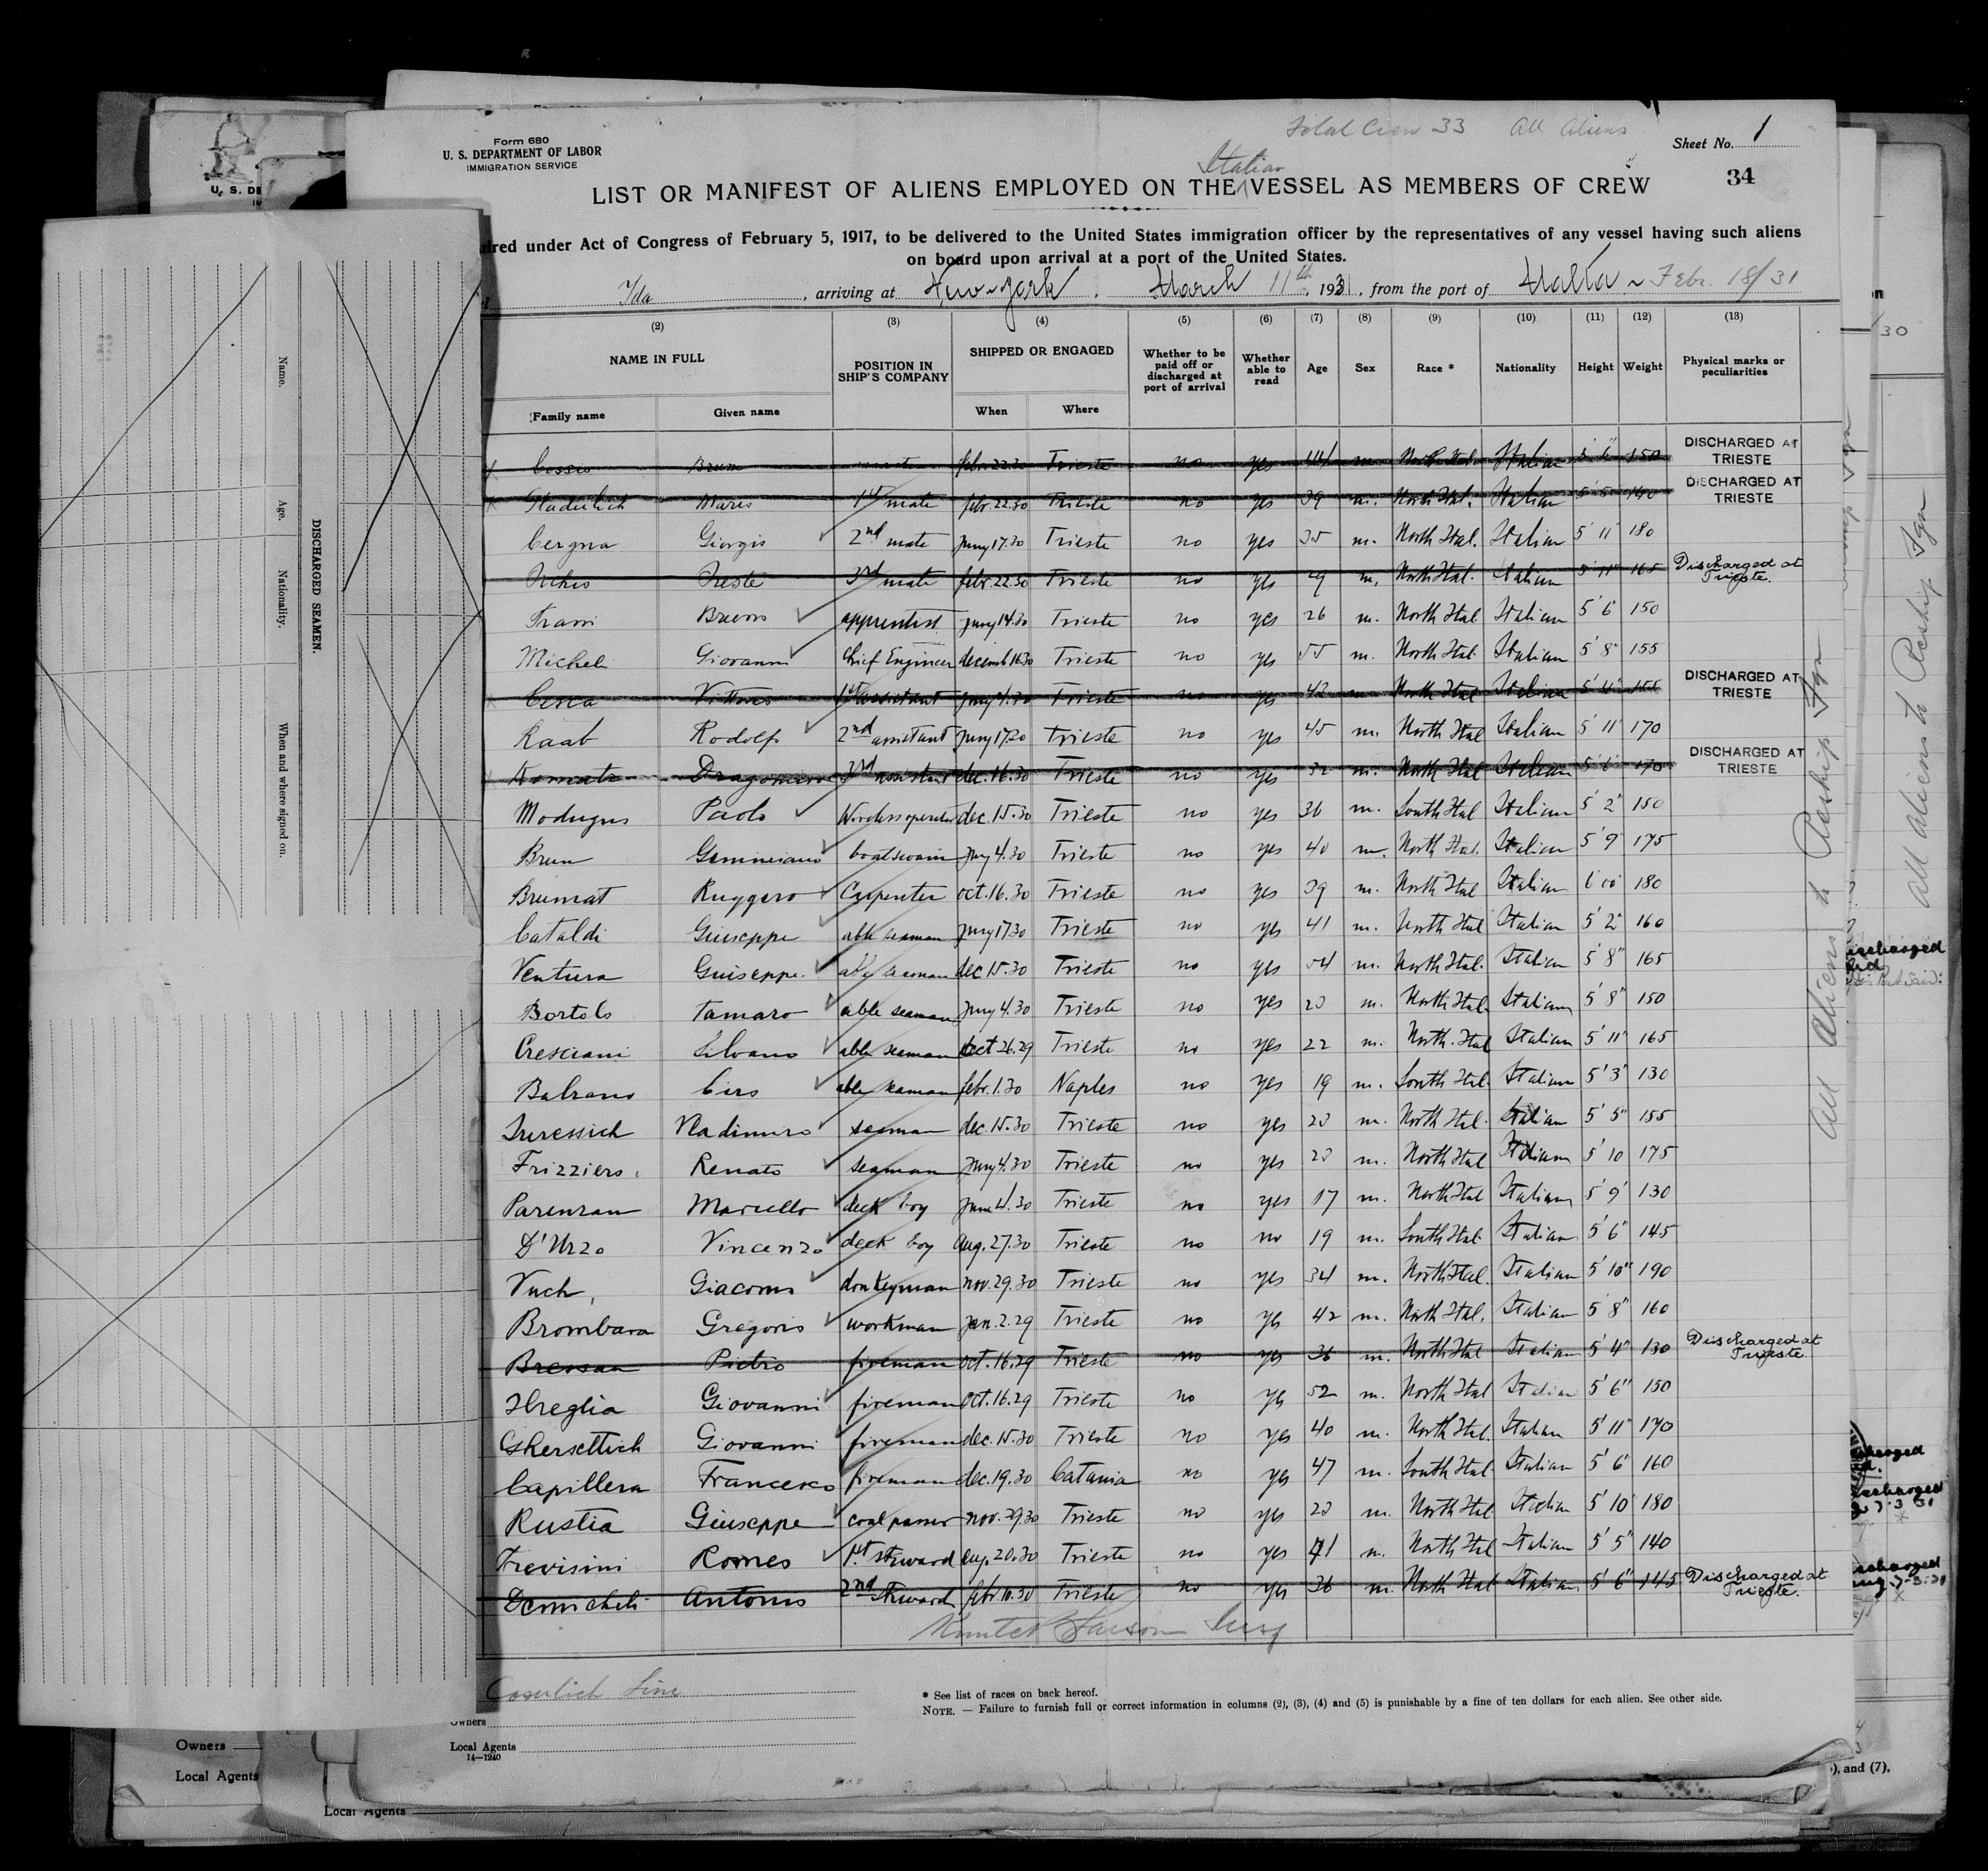 Total Crew 33 All Aliens
Form 680
U. S. DEPARTMENT OF LABOR
IMMIGRATION SERVICE
Sheet No. 1
Italian
LIST OR MANIFEST OF ALIENS EMPLOYED ON THE VESSEL AS MEMBERS OF CREW
34
ired under Act of Congress of February 5, 1917, to be delivered to the United States immigration officer by the representatives of any vessel having such aliens
on board upon arrival at a port of the United States.
Ida, arriving at New-York, March 11th, 1931, from the port of Malta ~ Febr. 18/31
(2) (3) (4) (5) (6) (7) (8) (9) (10) (11) (12) (13)
NAME IN FULL POSITION IN SHIP'S COMPANY SHIPPED OR ENGAGED Whether to be paid off or discharged at port of arrival Whether able to read Age Sex Race * Nationality Height Weight Physical marks or peculiarities
Family name Given name When Where
Cossio Brun febr. 22.30 Trieste no yes 44 m. North Ital. Italian 150 DISCHARGED AT TRIESTE
Mario 1st mate febr. 22.30 Trieste no yes 39 m. North Ital. Italian 5' 5" 140 DISCHARGED AT TRIESTE
Cergna Giorgio 2nd mate 17.30 Trieste no yes 35 m. North Ital. Italian 5' 11" 180
3rd mate febr. 22.30 Trieste no yes 29 m. North Ital. Italian 5' 11" 165 Discharged at Trieste.
Bruno 14.30 Trieste no yes 26 m. North Ital. Italian 5' 6" 150
Michele Giovanni Chief Engineer decemb 16.30 Trieste no yes 55 m. North Ital. Italian 5' 8" 155
Cesca Vittorio 1st assistant 4.30 Trieste no yes 42 m. North Ital Italian 5' 4" 155 DISCHARGED AT TRIESTE
Raab Rodolfo 2nd assistant 17.30 Trieste no yes 45 m. North Ital Italian 5' 11" 170
Dragomiro 3rd assistant dec. 16.30 Trieste no yes 32 m. North Ital Italian 5' 6" 170 DISCHARGED AT TRIESTE
Modugno Paolo Wireless operator dec. 15.30 Trieste no yes 36 m. South Ital Italian 5' 2" 150
Brun Gemminiano boatswain 4.30 Trieste no yes 40 m. North Ital. Italian 5' 9" 175
Brumat Ruggero Carpenter oct. 16.30 Trieste no yes 39 m. North Ital Italian 6' 00 180
Cataldi Giuseppe able seaman 17.30 Trieste no yes 41 m. North Ital Italian 5' 2" 160
Ventura Guiseppe able seaman dec 15.30 Trieste no yes 54 m. North Ital. Italian 5' 8" 165
Bortolo Tamaro able seaman 4.30 Trieste no yes 23 m. North Ital. Italian 5' 8" 150
Cresciani Silvano able seaman oct 26.29 Trieste no yes 22 m. North. Ital Italian 5' 11" 165
Balzano Ciro able seaman febr. 1.30 Naples no yes 19 m. South Ital. Italian 5' 3" 130
Vladimiro seaman dec. 15.30 Trieste no yes 23 m. North Ital. Italian 5' 5" 155
Frizziero Renato seaman 4.30 Trieste no yes 23 m. North Ital Italian 5' 10 175
Parenzan Marcello deck boy June 4.30 Trieste no yes 17 m. North Ital Italian 5' 9' 130
D'Urzo Vincenzo deck boy Aug. 27.30 Trieste no no 19 m. South Ital. Italian 5' 6" 145
Vuch, Giacomo donkeyman nov. 29.30 Trieste no yes 34 m. North Ital. Italian 5' 10" 190
Brombara Gregorio workman jan. 2.29 Trieste no yes 42 m. North Ital. Italian 5' 8" 160
Bressan Pietro fireman oct. 16.29 Trieste no yes 36 m. North Ital Italian 5' 4" 130 Discharged at Trieste.
Giovanni fireman oct. 16.29 Trieste no yes 52 m. North Ital Italian 5' 6" 150
Ghersettich Giovanni fireman dec. 15.30 Trieste no yes 40 m. North Ital. Italian 5' 11" 170
Capillera Francesco fireman dec. 19.30 Catania no yes 47 m. South Ital Italian 5' 6" 160
Rustia Giuseppe coalpasser nov. 29.30 Trieste no yes 23 m. North Ital Italian 5' 10" 180
Trevisini Romeo 1st Steward 20.30 Trieste no yes 41 m. North Ital Italian 5' 5" 140
Demicheli Antonio 2nd Steward febr. 10.30 Trieste no yes 36 m. North Ital Italian 5' 6" 145 Discharged at Trieste.
Insp
Cosulich Line
* See list of races on back hereof.
NOTE. — Failure to furnish full or correct information in columns (2), (3), (4) and (5) is punishable by a fine of ten dollars for each alien. See other side.
Owners
Local Agents
14—1240
All Aliens to Reship
All Aliens to Reship
DISCHARGED SEAMEN.
Name. Age. Nationality. When and where signed on.
Owners
Local Agents
Local Agents
), and (7).